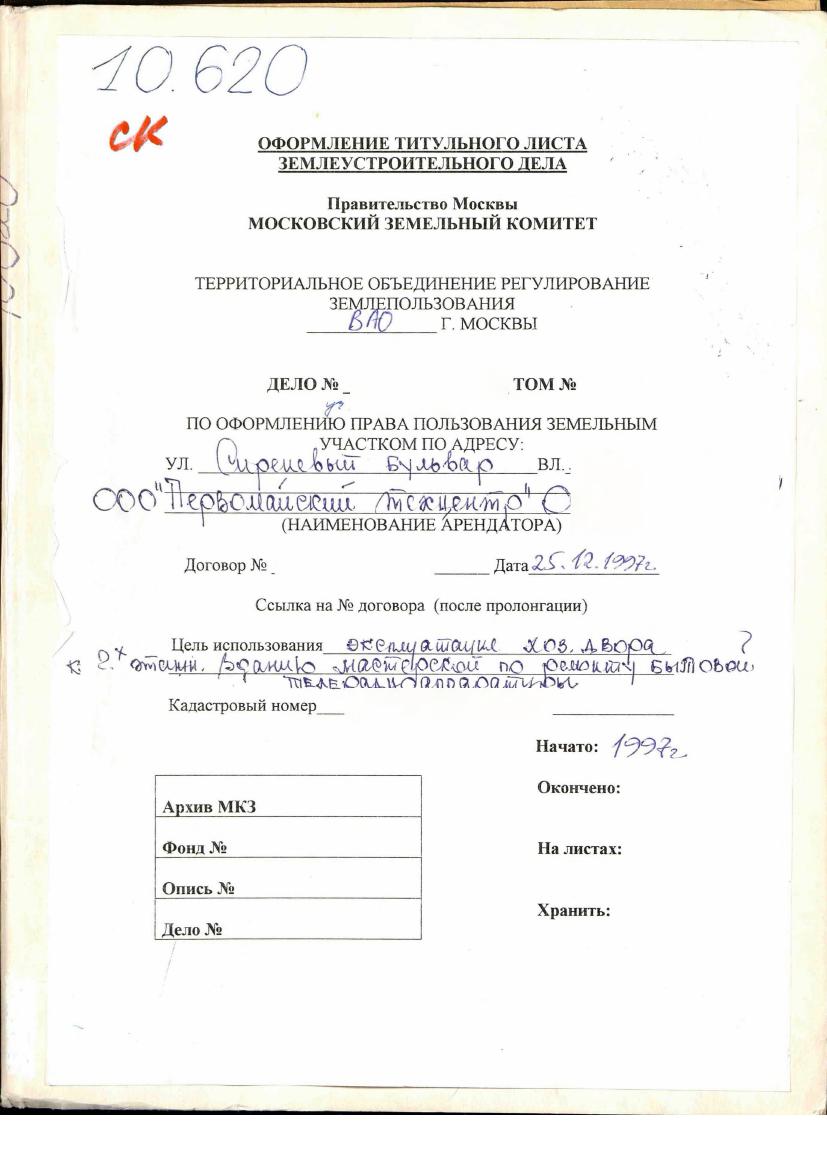 10.620
СК
ОФОРМЛЕНИЕ ТИТУЛЬНОГО ЛИСТА
ЗЕМЛЕУСТРОИТЕЛЬНОГО ДЕЛА
Правительство Москвы
МОСКОВСКИЙ ЗЕМЕЛЬНЫЙ КОМИТЕТ
ТЕРРИТОРИАЛЬНОЕ ОБЪЕДИНЕНИЕ РЕГУЛИРОВАНИЕ
ЗЕМЛЕПОЛЬЗОВАНИЯ
ВАО Г. МОСКВЫ
ДЕЛО № ТОМ №
ПО ОФОРМЛЕНИЮ ПРАВА ПОЛЬЗОВАНИЯ ЗЕМЕЛЬНЫМ
УЧАСТКОМ ПО АДРЕСУ:
УЛ. Сиреневый бульвар ВЛ.
ООО "Первомайский техцентр"
(НАИМЕНОВАНИЕ АРЕНДАТОРА)
Договор № Дата 25.12.1997г.
Ссылка на № договора (после пролонгации)
Цель использования эксплуатация хоз. двора ?
к 2х этажн. зданию мастерской по ремонту бытовой
телерадиоаппаратуры
Кадастровый номер
Начато: 1997г
Окончено:
Архив МКЗ
Фонд №
На листах:
Опись №
Хранить:
Дело №